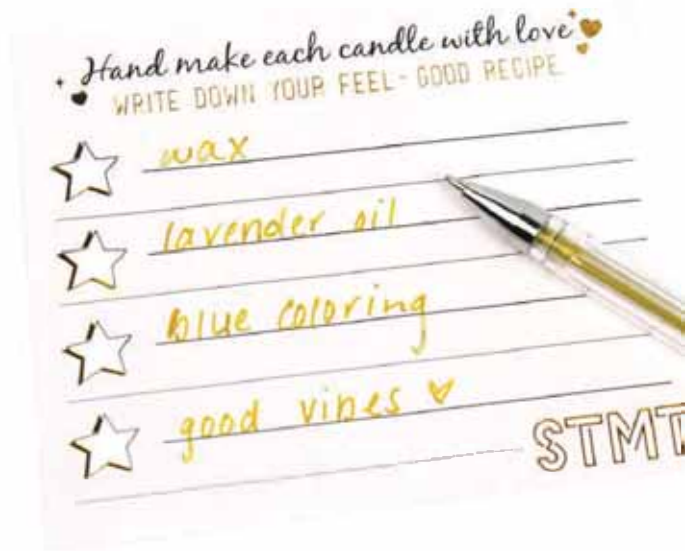 Hand make each candle with love
WRITE DOWN YOUR FEEL-GOOD RECIPE
wax
lavender oil
blue coloring
good vibes
STMT